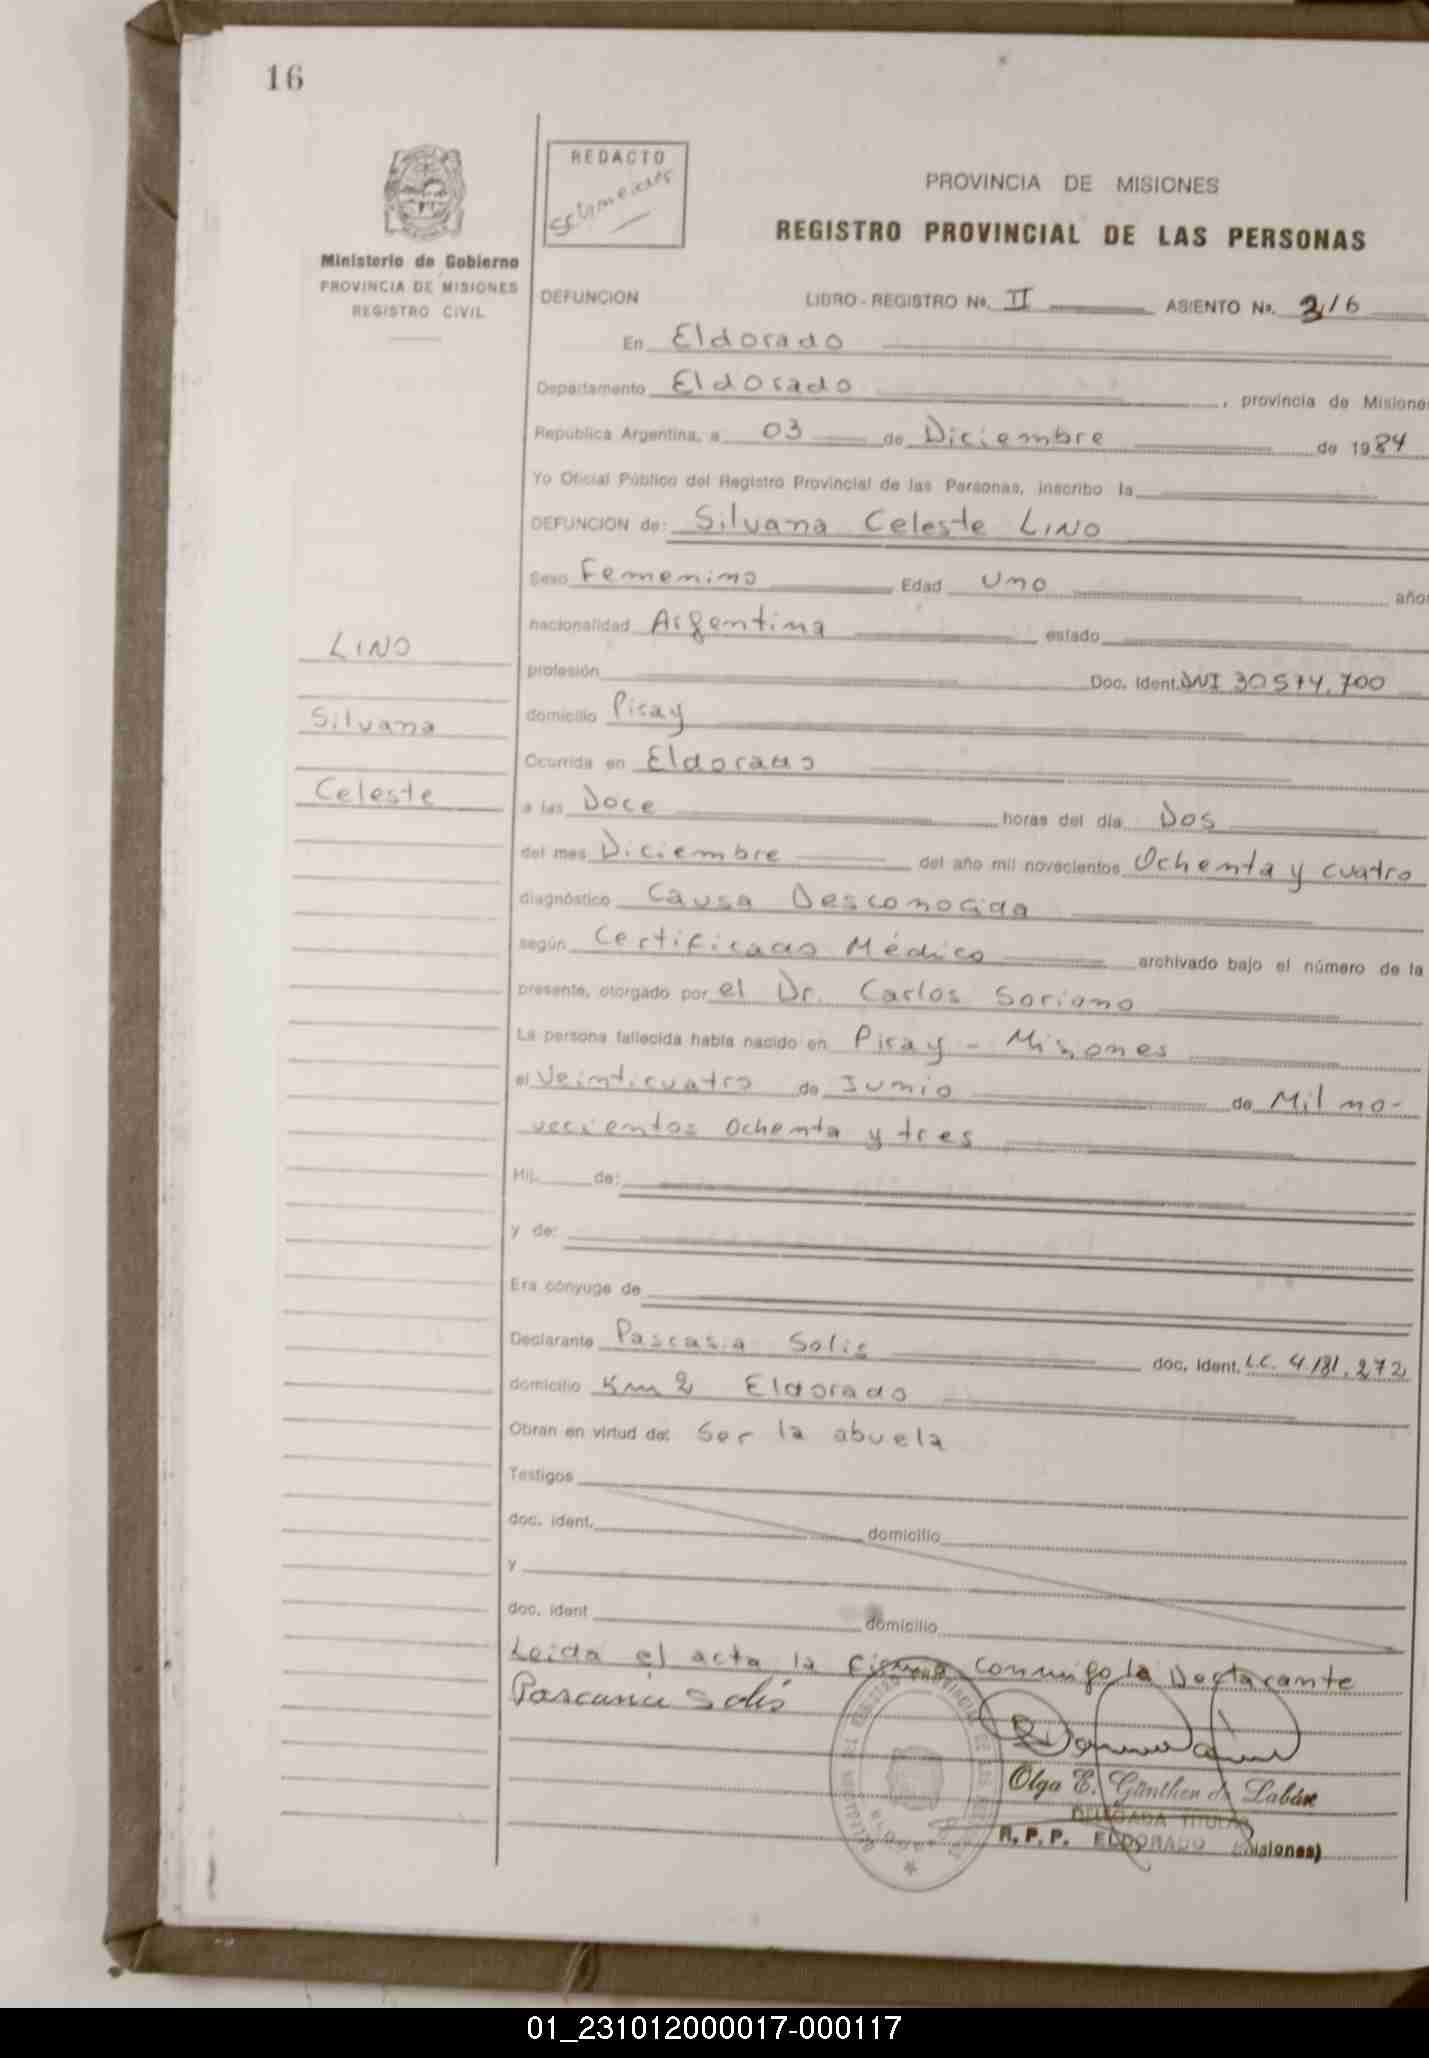 16
REDACTO
Ministerio de Gobierno
PROVINCIA DE MISIONES
REGISTRO CIVIL
PROVINCIA DE MISIONES
REGISTRO PROVINCIAL DE LAS PERSONAS
DEFUNCION LIBRO - REGISTRO No. II ASIENTO No. 316
En Eldorado
Departamento Eldorado , provincia de Misione
República Argentina, a 03 de Diciembre de 1984
Yo Oficial Público del Registro Provincial de las Personas, inscribo la
DEFUNCION de: Silvana Celeste LINO
Sexo Femenino Edad uno año
nacionalidad Argentina estado
profesión Doc. Ident. DNI 30574.700
domicilio Piray
Ocurrida en Eldorado
a las Doce horas del día Dos
del mes Diciembre del año mil novecientos Ochenta y cuatro
diagnóstico Causa Desconocida
según Certificado Médico archivado bajo el número de la
presente, otorgado por el Dr. Carlos Soriano
La persona fallecida había nacido en Piray - Misiones
el Veinticuatro de Junio de Mil no-
vecientos Ochenta y tres
Hij de:
y de:
Era cónyuge de
Declarante Pascasia Solis doc. ident. L.C. 4.181.272
domicilio Km 2 Eldorado
Obran en virtud de: Ser la abuela
Testigos
doc. ident. domicilio
y
doc. ident domicilio
Leida el acta la firma conmigo la Declarante
Solis
LINO
Silvana
Celeste
Olga E. Günther de Labán
DELEGADA TITULAR
R. P. P. ELDORADO (Misiones)
01_231012000017-000117